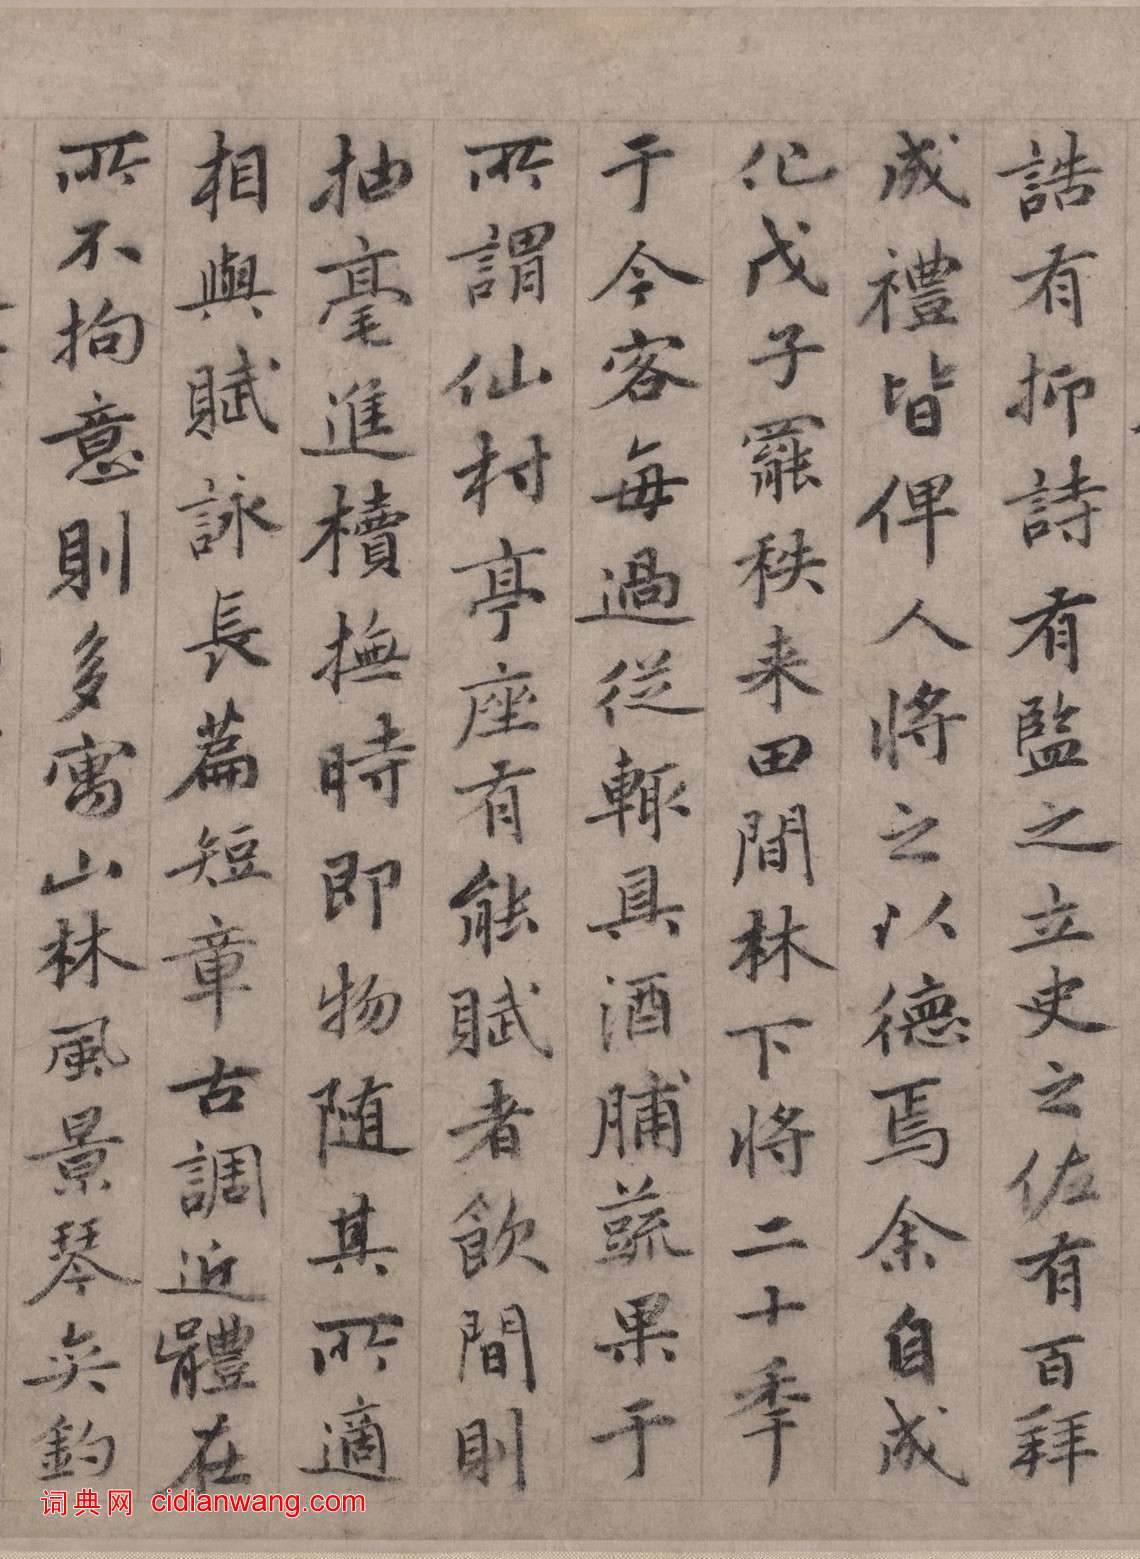 誥有抑詩有監之立史之佐有百拜
成禮皆俾人將之以德焉余自成
化戊子罷秩来田間林下將二十秊
于今客每過從輙具酒脯蔬果于
所謂仙村亭座有能賦者飲間則
抽毫進櫝撫時即物随其所適
相與賦詠長篇短章古調近體在
所不拘意則多寓山林風景琴奕釣
词典网 cidianwang.com